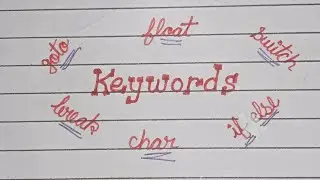 float
goto
switch
Keywords
break
char
if else